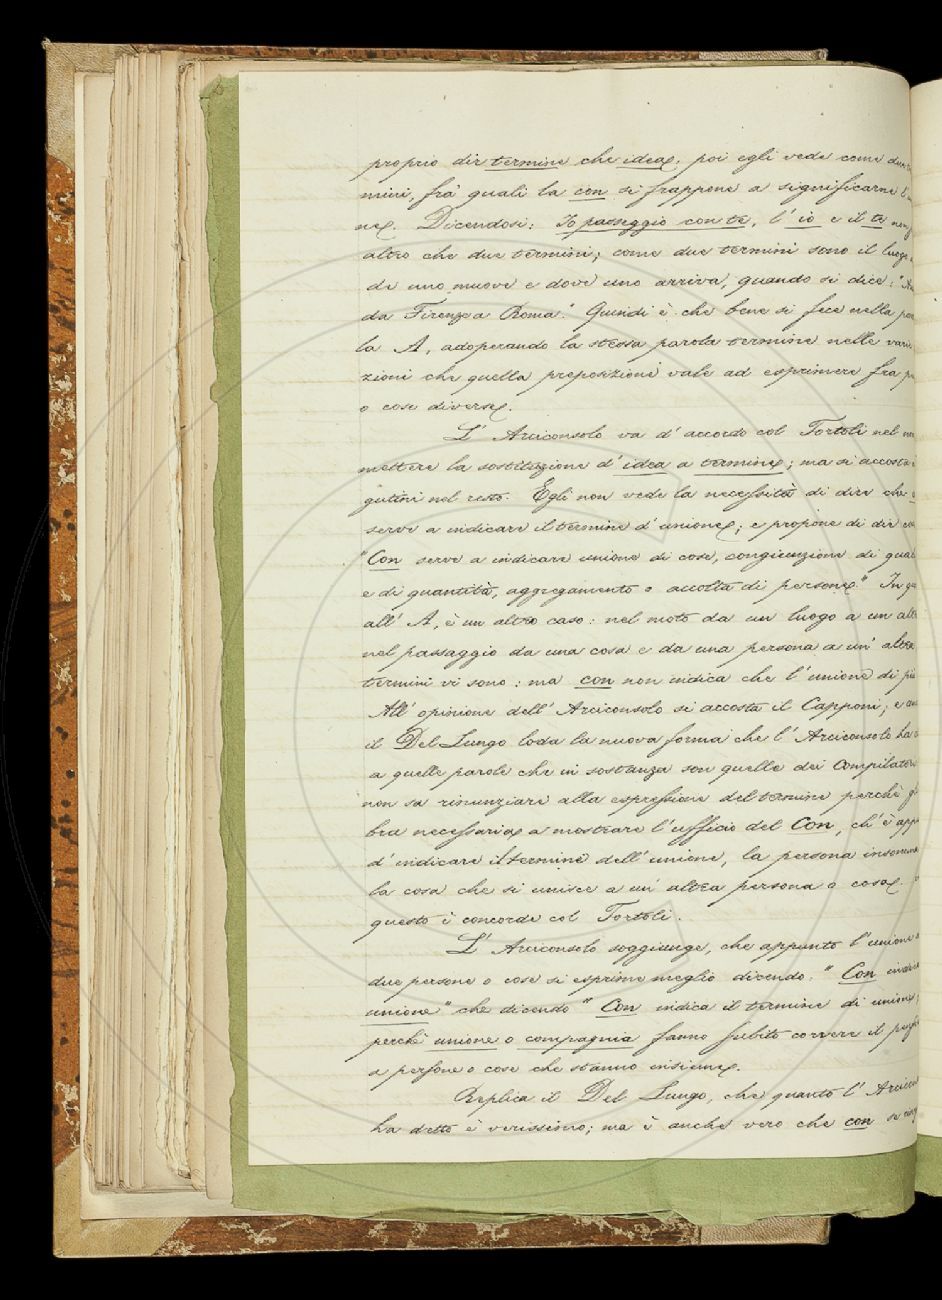 proprio dir termine che idea; poi egli vede come due
mini, fra' quali la con si frappone a significarne l'
ne. Dicendosi: Io passeggio con te, l' io e il te non
altro che due termini; come due termini sono il luogo
de uno muove e dove uno arriva, quando si dice: "
da Firenze a Roma". Quindi è che bene si fece nella
la A, adoperando la stessa parola termine nelle vari
zioni che quella preposizione vale ad esprimere fra
o cose diverse.
L' Arciconsolo va d' accordo col Tortoli nel
mettere la sostituzione d' idea a termine; ma si accosta
gutini nel resto. Egli non vede la necessità di dire che
serve a indicare il termine d' unione; e propone di dir
"Con serve a indicare unione di cose, congiunzione di
e di quantità, aggregamento o accolta di persone." In
all' A, è un altro caso: nel moto da un luogo a un
nel passaggio da una cosa e da una persona a un' altra
termini vi sono: ma con non indica che l' unione di
All' opinione dell' Arciconsolo si accosta il Capponi; e
il Del Lungo loda la nuova forma che l' Arciconsolo ha
a quelle parole che in sostanza son quelle dei Compilatori
non sa rinunziare alla espressione del termine perchè
bra necessaria a mostrare l' ufficio del Con, ch' è
d' indicare il termine dell' unione, la persona insomma
la cosa che si unisce a un' altra persona o cosa.
questo è concorde col Tortoli.
L' Arciconsolo soggiunge, che appunto l' unione
due persone o cose si esprime meglio dicendo: "Con
unione" che dicendo "Con indica il termine di unione
perchè unione o compagnia fanno subito correre il
a persone o cose che stanno insieme.
Replica il Del Lungo, che quanto l'
ha detto è verissimo; ma è anche vero che con se